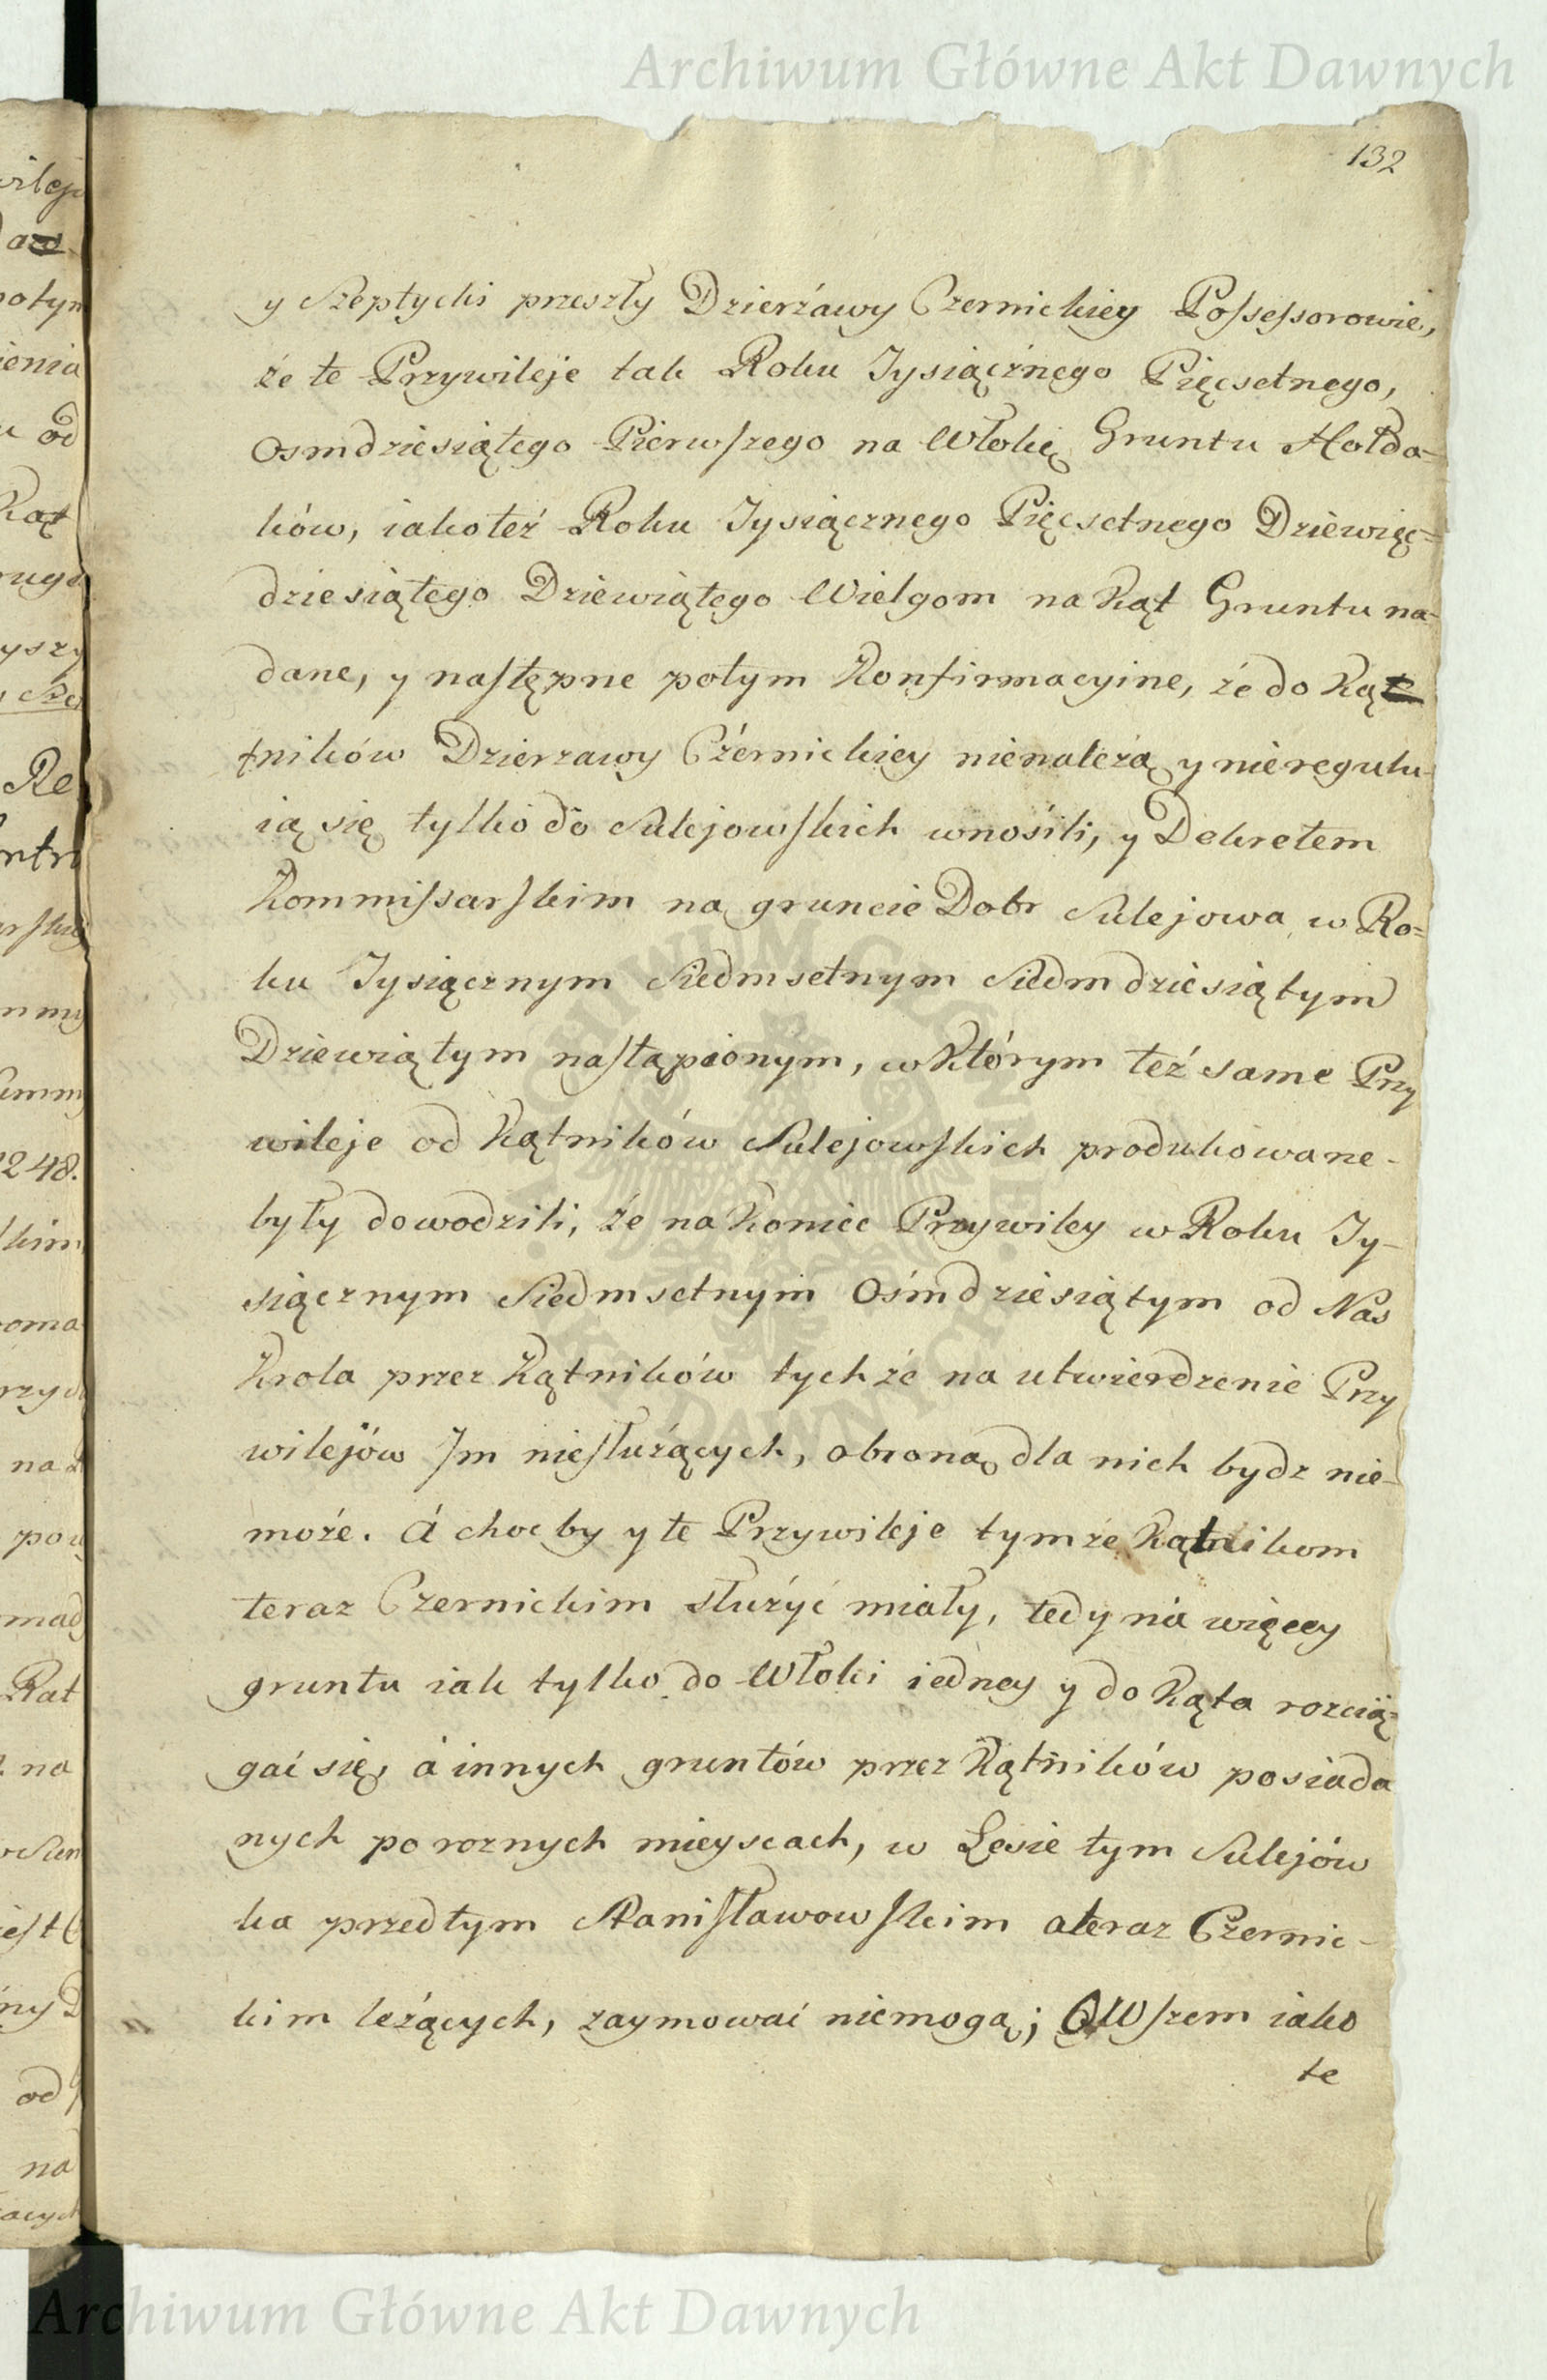 Archiwum Główne Akt Dawnych
132
y Szeptycki przeszły Dzierżawy Czernickiey Possessorowie,
że te Przywileje tak Roku Tysiącznego Pięcsetnego,
Osmdziesiątego Pierwszego na Włokę Gruntu Hołda=
ków, iako też Roku Tysiącznego Pięcsetnego Dziewięć=
dziesiątego Dziewiątego Wielgom na Kąt Gruntu na-
dane, y następne potym Konfirmacyine, że do Ką
tników Dzierzawy Czernickiey nienależą y nieregulu-
ią się tylko do Sulejowskich wnosili, y Dekretem
Kommissarskim na gruncie Dobr Sulejowa w Ro=
ku Tysiącznym Siedmsetnym Siedmdziesiątym
Dziewiątym nastąpionym, w którym też same Przy
wileje od Kątników Sulejowskich produkowane-
były dowodzili, że na koniec Przywiley w Roku Ty-
siącznym Siedmsetnym Ośmdziesiątym od Nas
Krola przez Kątników tychże na utwierdzenie Przy
wilejów Im niesłużących, obroną dla nich bydz nie-
może. á choc by y te Przywileje tymże Kątnikom
teraz Czernickim służyć miały, tedy nia więcey
gruntu iak tylko do Włoki iedney y do Kąta rozcią=
gać się, á innych gruntów przez Kątników posiada
nych po roznych mieyscach, w Lesie tym Sulejów
ka przedtym Stanisławowskim a teraz Czernic-
kim leżących, zaymować niemogą; Owszem iako
te
Archiwum Główne Akt Dawnych